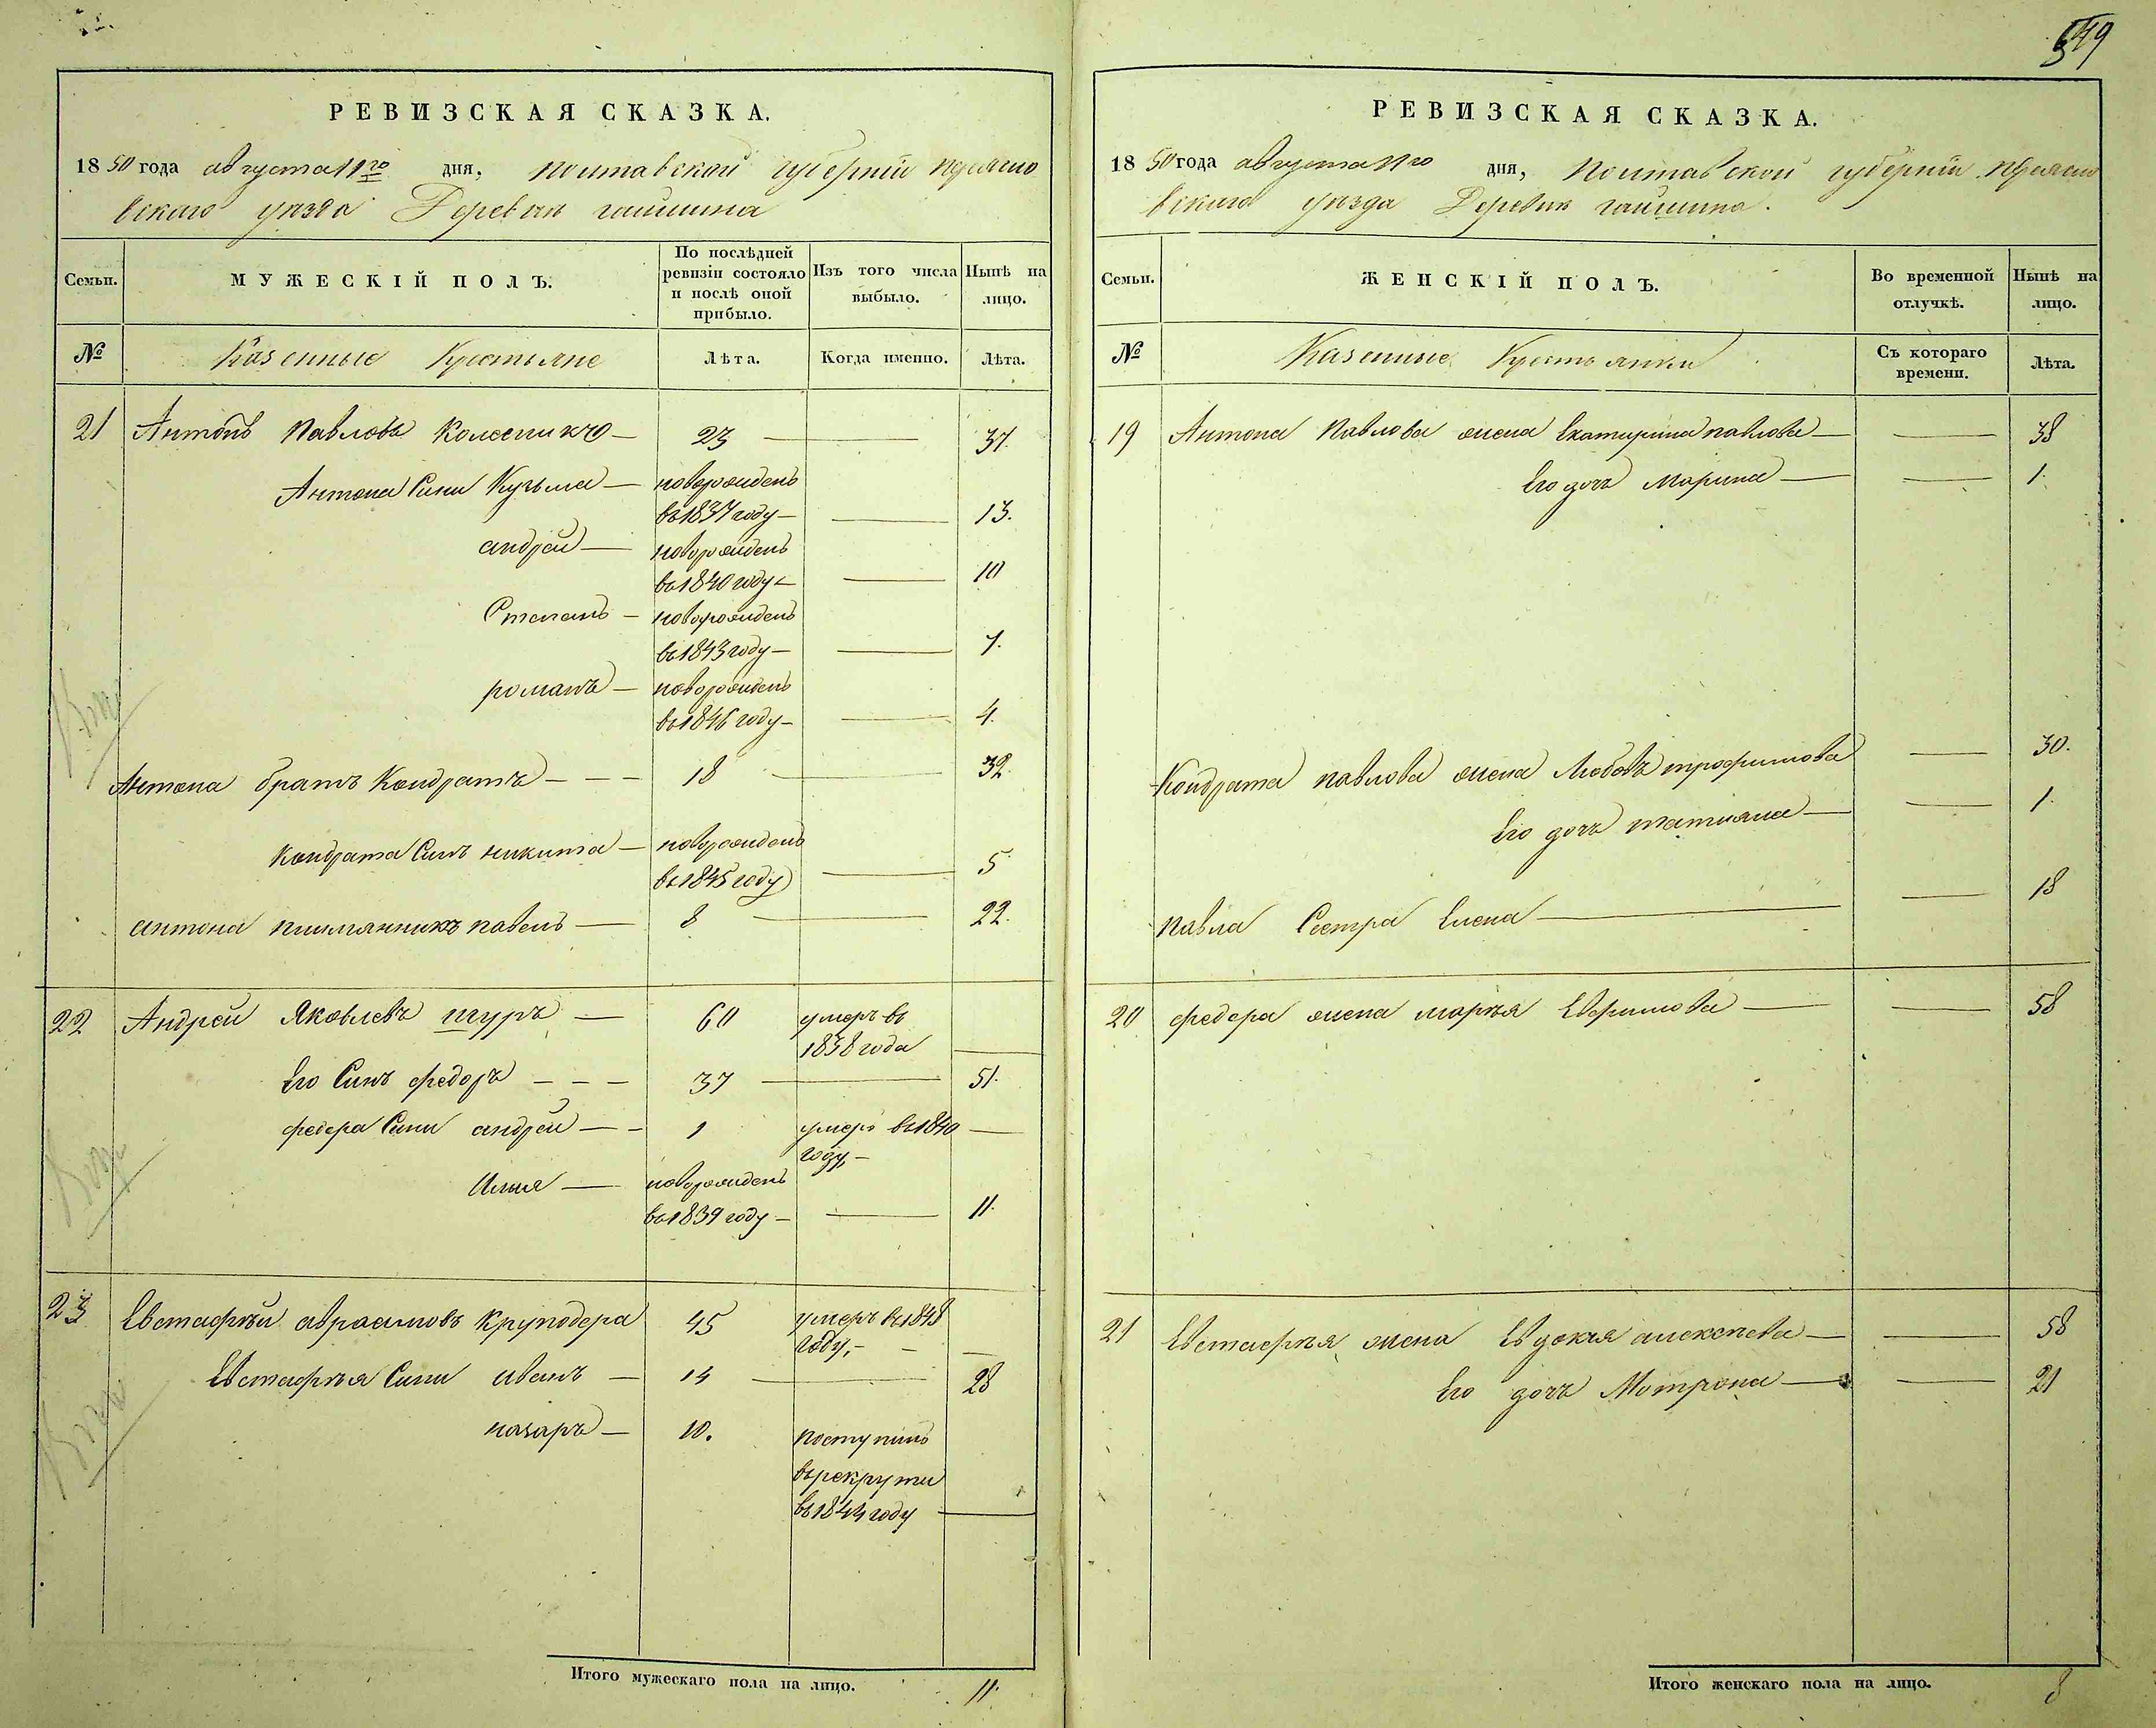 549
РЕВИЗСКАЯ СКАЗКА.
1850 года августа 11го дня, Полтавской губернии Переясло
вского уезда Деревни гайшина
Семьи.
МУЖЕСКІЙ ПОЛЪ.
По послѣдней ревизіи состояло и послѣ оной прибыло.
Изъ того числа выбыло.
Нынѣ на лицо.
№
Казенные Крестьяне
Лѣта.
Когда именно.
Лѣта.
21 Антонъ Павловъ Колесникъ 23 37.
Антона Сини Кузьма новорожденъ
въ 1837 году 13.
андрей новорожденъ
въ 1840 году 10
Степанъ новорожденъ
въ 1843 году 7.
романъ новорожденъ
въ 1846 году 4.
Антона братъ Кондратъ 18 32.
Кондрата Синъ никита новорожденъ
въ 1845 году 5
антона племянникъ павелъ 8 22.
22 Андрей Яковлевъ щуръ 60 умеръ въ
1838 года
Его Синъ федоръ 37 51.
федора Сини андрей 1 умеръ въ 1840
году,
Илия новорожденъ
въ 1839 году 11.
23 Евстафѣй авраамовъ круподера 45 умеръ въ 1848
году,
Евстафѣя Сини иванъ 14 28
назаръ 10. поступилъ
въ рекруты
въ 1844 году
Итого мужескаго пола на лицо. 11.
РЕВИЗСКАЯ СКАЗКА.
1850 года августа 11го дня, Полтавской губерніи Переясло
вского уезда Деревни гайшина.
Семьи.
ЖЕНСКІЙ ПОЛЪ.
Во временной отлучкѣ.
Нынѣ на лицо.
№
Казенные Крестьянки
Съ котораго времени.
Лѣта.
19 Антона Павлова жена Екатирина павлова 38
Его дочъ Марина 1.
Кондрата павлова жена Любовъ трофимова 30.
Его дочъ татияна 1.
павла Сестра Елена 18
20 федора жена маръя Ефимова 58
21 Евстафѣя жена Евдокія алексѣева 58
Его дочъ Мотрона 21
Итого женскаго пола на лицо. 8